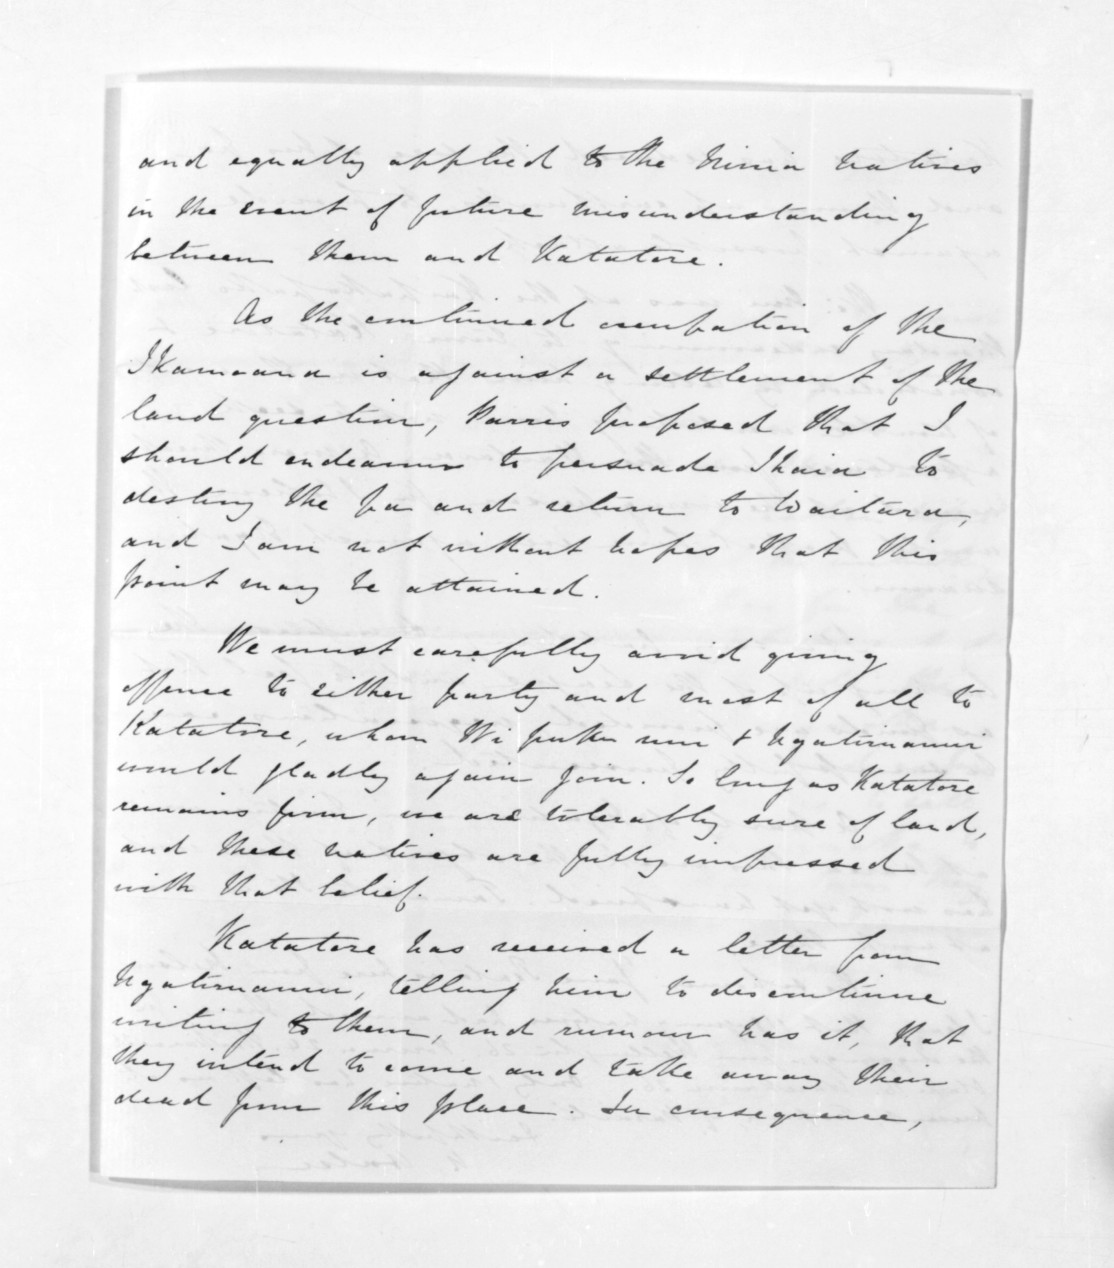 and equally applied to the Ninia natives
in the event of future misunderstanding
between them and Katatore.
As the continued occupation of the
Ikamoana is against a settlement of the
land question, Parris proposed that I
should endeavour to persuade Ihaia to
destroy the pa and return to Waitara,
and I am not without hopes that this
point may be attained.
We must carefully avoid giving
offence to either party and most of all to
Katatore, whom Wi
would gladly again join. So long as Katatore
remains firm, we are tolerably sure of land,
and these natives are fully impressed
with that belief.
Katatore has received a letter from
Ngatiruanui, telling him to discontinue
writing to them, and rumour has it, that
they intend to come and take away their
dead from this place. In consequence,